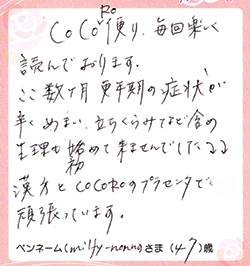 CoCoRo便り、毎回楽しく
読んでおります。
ここ数ヶ月 更年期の症状が
辛く めまい、立ちくらみなど
生理も始めて来ませんでした
漢方とCOCOROのプラセンタで
頑張っています。
ペンネーム(milty-nonno)さま(47)歳